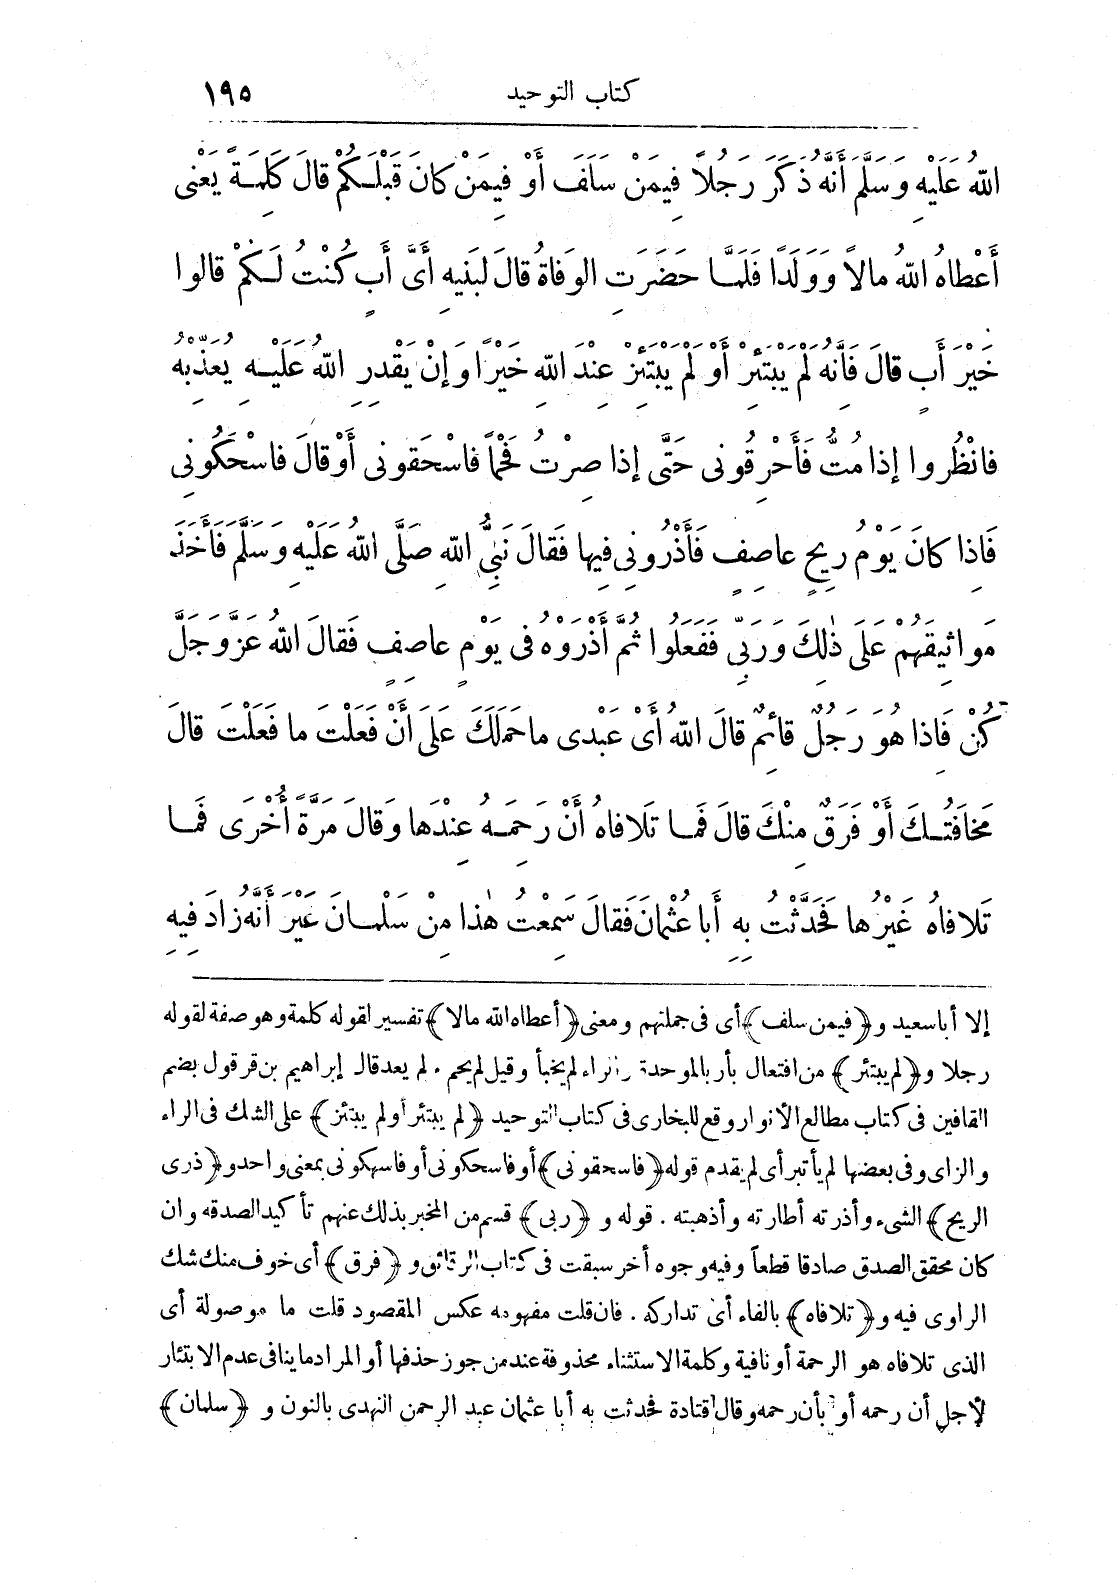 كتاب التوحيد ١٩٥
اللهُ عَلَيْهِ وَسَلَّمَ أَنَّهُ ذَكَرَ رَجُلًا فِيمَنْ سَلَفَ أَوْ فِيمَنْ كَانَ قَبْلَكُمْ قَالَ كَلِمَةً يَعْنِى
أَعْطَاهُ اللهُ مَالًا وَوَلَدًا فَلَمَّا حَضَرَتِ الوَفَاةُ قَالَ لِبَنِيهِ أَىَّ أَبٍ كُنْتُ لَكُمْ قَالُوا
خَيْرَ أَبٍ قَالَ فَإِنَّهُ لَمْ يَبْتَئِرْ أَوْ لَمْ يَبْتَئِزْ عِنْدَ اللهِ خَيْرًا وَإِنْ يَقْدِرِ اللهُ عَلَيْهِ يُعَذِّبْهُ
فَانْظُرُوا إِذَا مُتُّ فَأَحْرِقُونِى حَتَّى إِذَا صِرْتُ فَحْمًا فَاسْحَقُونِى أَوْ قَالَ فَاسْحَكُونِى
فَإِذَا كَانَ يَوْمُ رِيحٍ عَاصِفٍ فَأَذْرُونِى فِيهَا فَقَالَ نَبِىُّ اللهِ صَلَّى اللهُ عَلَيْهِ وَسَلَّمَ فَأَخَذَ
مَوَاثِيقَهُمْ عَلَى ذٰلِكَ وَرَبِّى فَفَعَلُوا ثُمَّ أَذْرَوْهُ فِى يَوْمٍ عَاصِفٍ فَقَالَ اللهُ عَزَّ وَجَلَّ
كُنْ فَإِذَا هُوَ رَجُلٌ قَائِمٌ قَالَ اللهُ أَىْ عَبْدِى مَا حَمَلَكَ عَلَى أَنْ فَعَلْتَ مَا فَعَلْتَ قَالَ
مَخَافَتُكَ أَوْ فَرَقٌ مِنْكَ قَالَ فَمَا تَلَافَاهُ أَنْ رَحِمَهُ عِنْدَهَا وَقَالَ مَرَّةً أُخْرَى فَمَا
تَلَافَاهُ غَيْرُهَا فَحَدَّثْتُ بِهِ أَبَا عُثْمَانَ فَقَالَ سَمِعْتُ هٰذَا مِنْ سَلْمَانَ غَيْرَ أَنَّهُ زَادَ فِيهِ
إلا أبا سعيد و﴿فيمن سلف﴾ أى فى جملتهم ومعنى ﴿أعطاه الله مالا﴾ تفسير لقوله كلمة وهو صفة لقوله
رجلا و﴿لم يبتئر﴾ من افتعال بأر بالموحدة والراء لم يخبأ وقيل لم يحم . لم يعد قال إبراهيم بن قرقول بضم
القافين فى كتاب مطالع الأنوار وقع للبخارى فى كتاب التوحيد ﴿لم يبتئر أو لم يبتئز﴾ على الشك فى الراء
والزاى وفى بعضها لم يأتبر أى لم يقدم قوله ﴿فاسحقونى﴾ أو فاسحكونى أو فاسهكونى بمعنى واحد و﴿ذرى
الريح﴾ الشىء وأذرته أطارته وأذهبته . قوله و ﴿ربى﴾ قسم من المخبر بذلك عنهم تأكيد الصدقه وان
كان محقق الصدق صادقا قطعاً وفيه وجوه أخر سبقت فى كتاب الرقائق و ﴿فرق﴾ أى خوف منك شك
الراوى فيه و﴿تلافاه﴾ بالفاء أى تداركه . فان قلت مفهومه عكس المقصود قلت ما موصولة أى
الذى تلافاه هو الرحمة أو نافية وكلمة الاستثناء محذوفة عند من جوز حذفها أو المراد ما ينافى عدم الابتئار
لأجل أن رحمه أو بأن رحمه وقال قتادة فحدثت به أبا عثمان عبد الرحمن النهدى بالنون و ﴿سلمان﴾